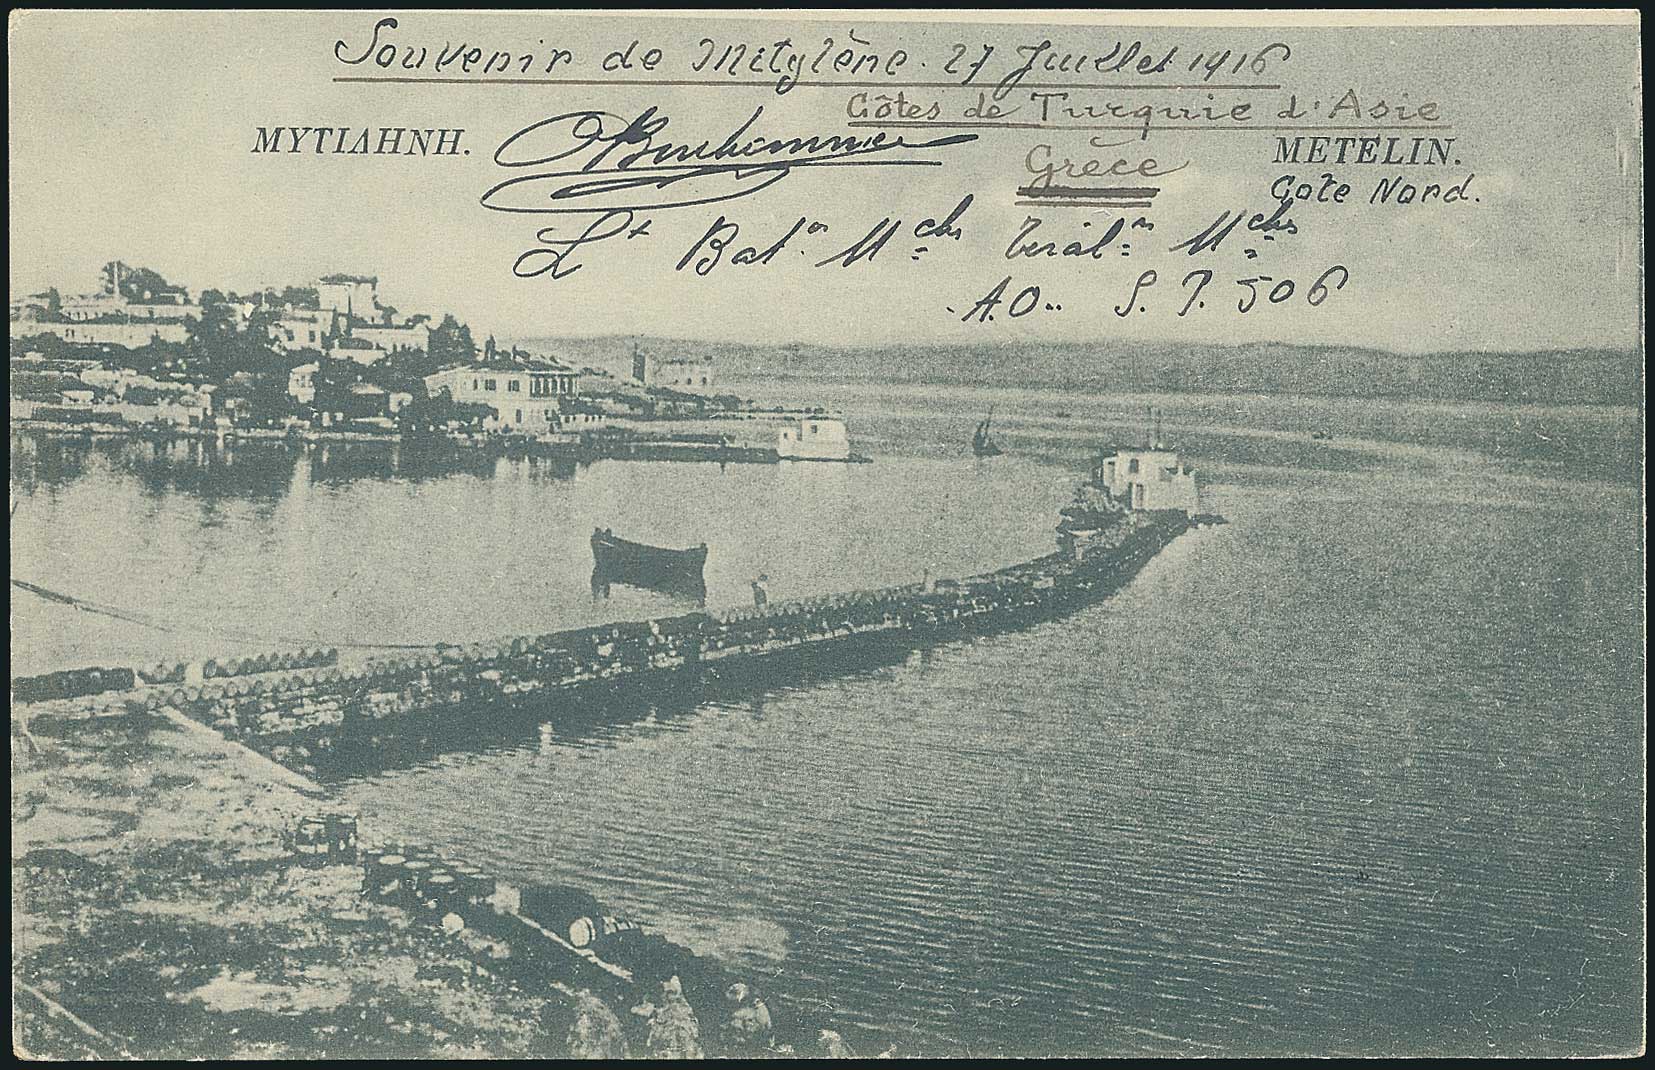 Souvenir de Mitylène. 27 Juillet 1916
Côtes de Turquie d'Asie
ΜΥΤΙΛΗΝΗ.
Grèce
METELIN.
Cote Nord.
Lt Bat.on Mchs Mchs
A.O.. S.P. 506